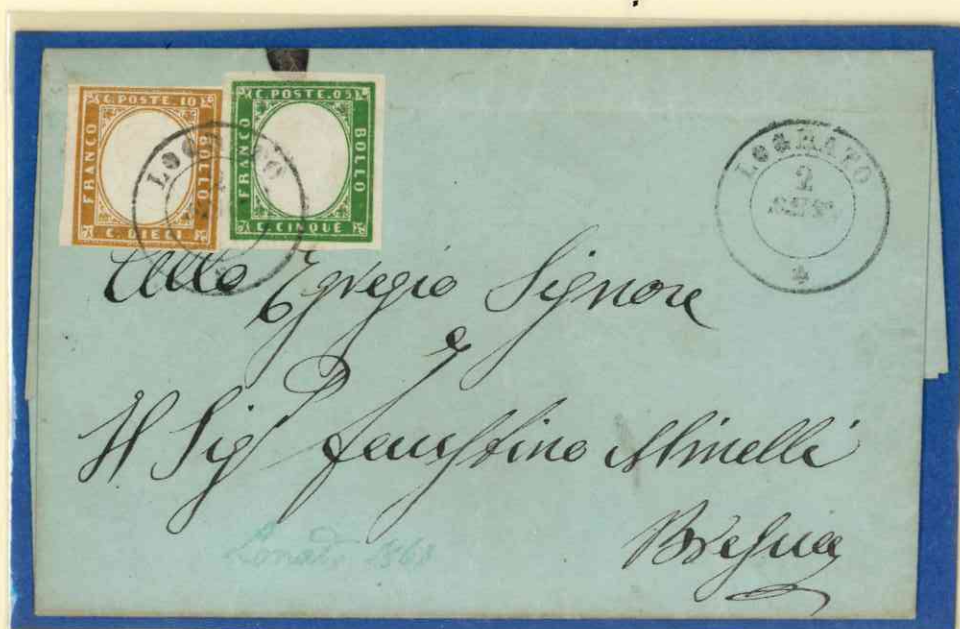 C. POSTE. 10
FRANCO
BOLLO
C. DIECI
C. POSTE. 05
FRANCO
BOLLO
C. CINQUE
LOGRATO
2
All Egregio Signore
Il Sigr Faustino Minelli
Brescia
Lonato 1861